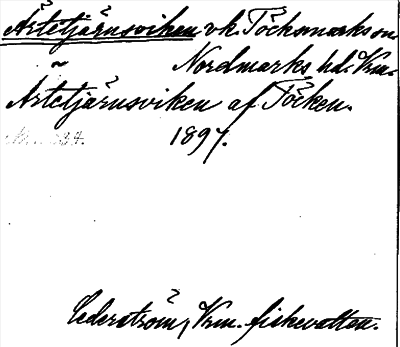 Ärtetjärnsviken vk. Töcksmarks sn.
Nordmarks hd. Vrm.
~
Ärtetjärnsviken af Töcken.
1897.
Cederström, Vrm. fiskevatten.